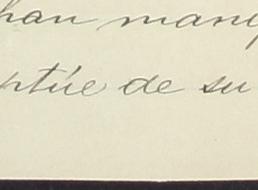 han manq
ptüe de su